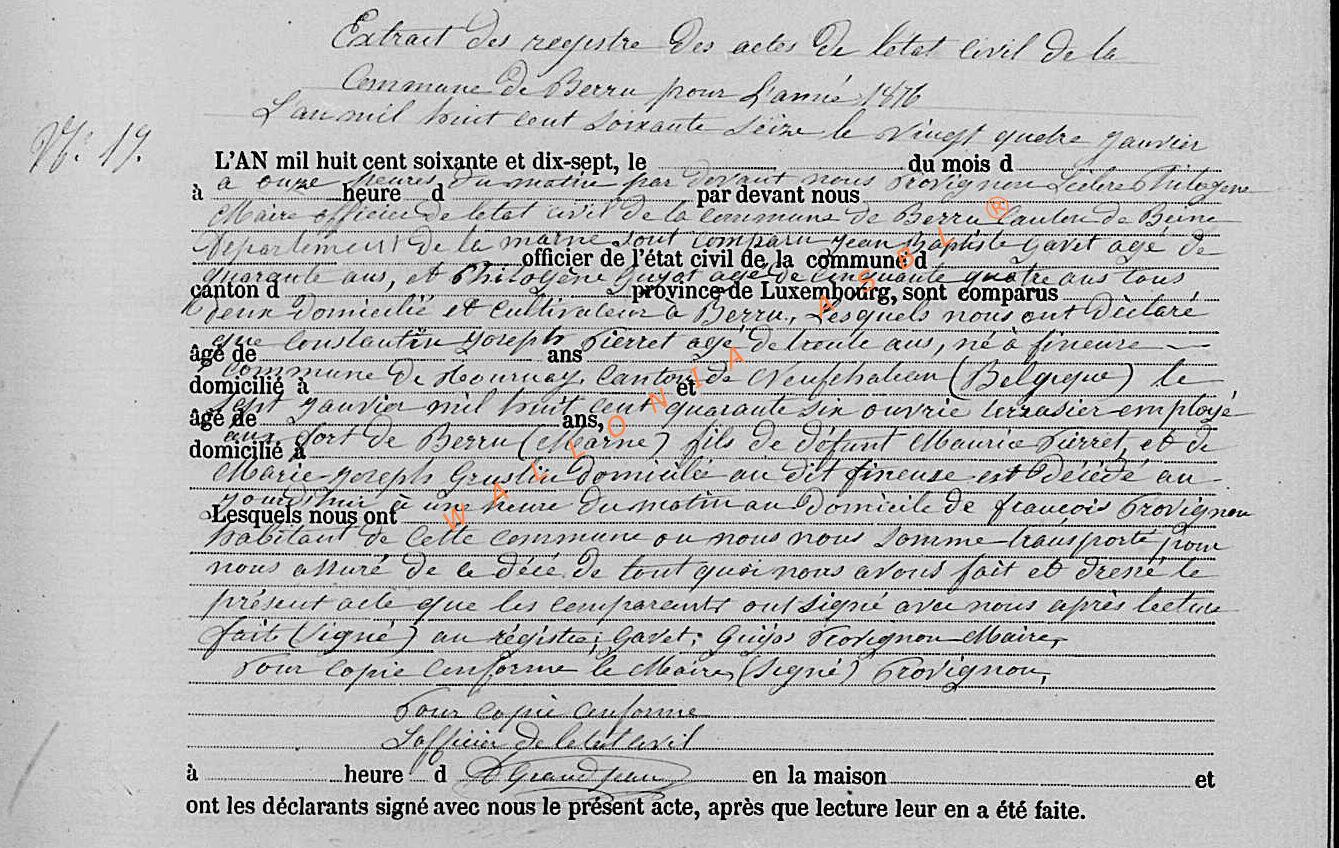 Extrait des registre des actes de letat civil de la
Commune de Berru pour L'anné 1876
L'an mil huit cent soixante seize le vingt quatre janvier
N°. 19.
L'AN mil huit cent soixante et dix-sept, le du mois d
a onze heures du matin par devant nous Provignon Philogene
à heure d par devant nous
Maire officier de letat civil de la commune de Berru Canton de Beine
Departement de la marne sont comparu Jean Baptiste Gavet agé de
officier de l'état civil de la commune d
quarante ans, et Philogène Guyot agé de cinquante quatre ans tous
canton d province de Luxembourg, sont comparus
deux domicilié et cultivateur a Berru, Lesquels nous ont déclaré
que Constantin Joseph Pierret agé de trente ans, né à fineuse
âgé de ans
Commune de Canton de Neufchateau (Belgique) le
domicilié à et
sept Janvier mil huit cent quarante six ouvrie terrasier employé
âgé de ans,
aux fort de Berru (Marne) fils de défunt Maurice Pierret, et de
domicilié à
Marie-Joseph Gruslin domiciliée au dit fineuse est décédé au
jourdhui à une heure du matin au domicile de francois Provignon
Lesquels nous ont
habitant de Cette commune ou nous nous somme transporté pour
nous assuré de ce décé de tout quoi nous avons fait et dressé le
présent acte que les comparents ont signé avec nous après lecture
fait (signé) au régistre; Gavet; Guyot Provignon Maire,
Pour copie conforme le Maire (signé) Provignon,
Pour copie conforme
L'officier de letat civil
à heure d Grandjean en la maison et
ont les déclarants signé avec nous le présent acte, après que lecture leur en a été faite.
WALLONIA ASBL ®